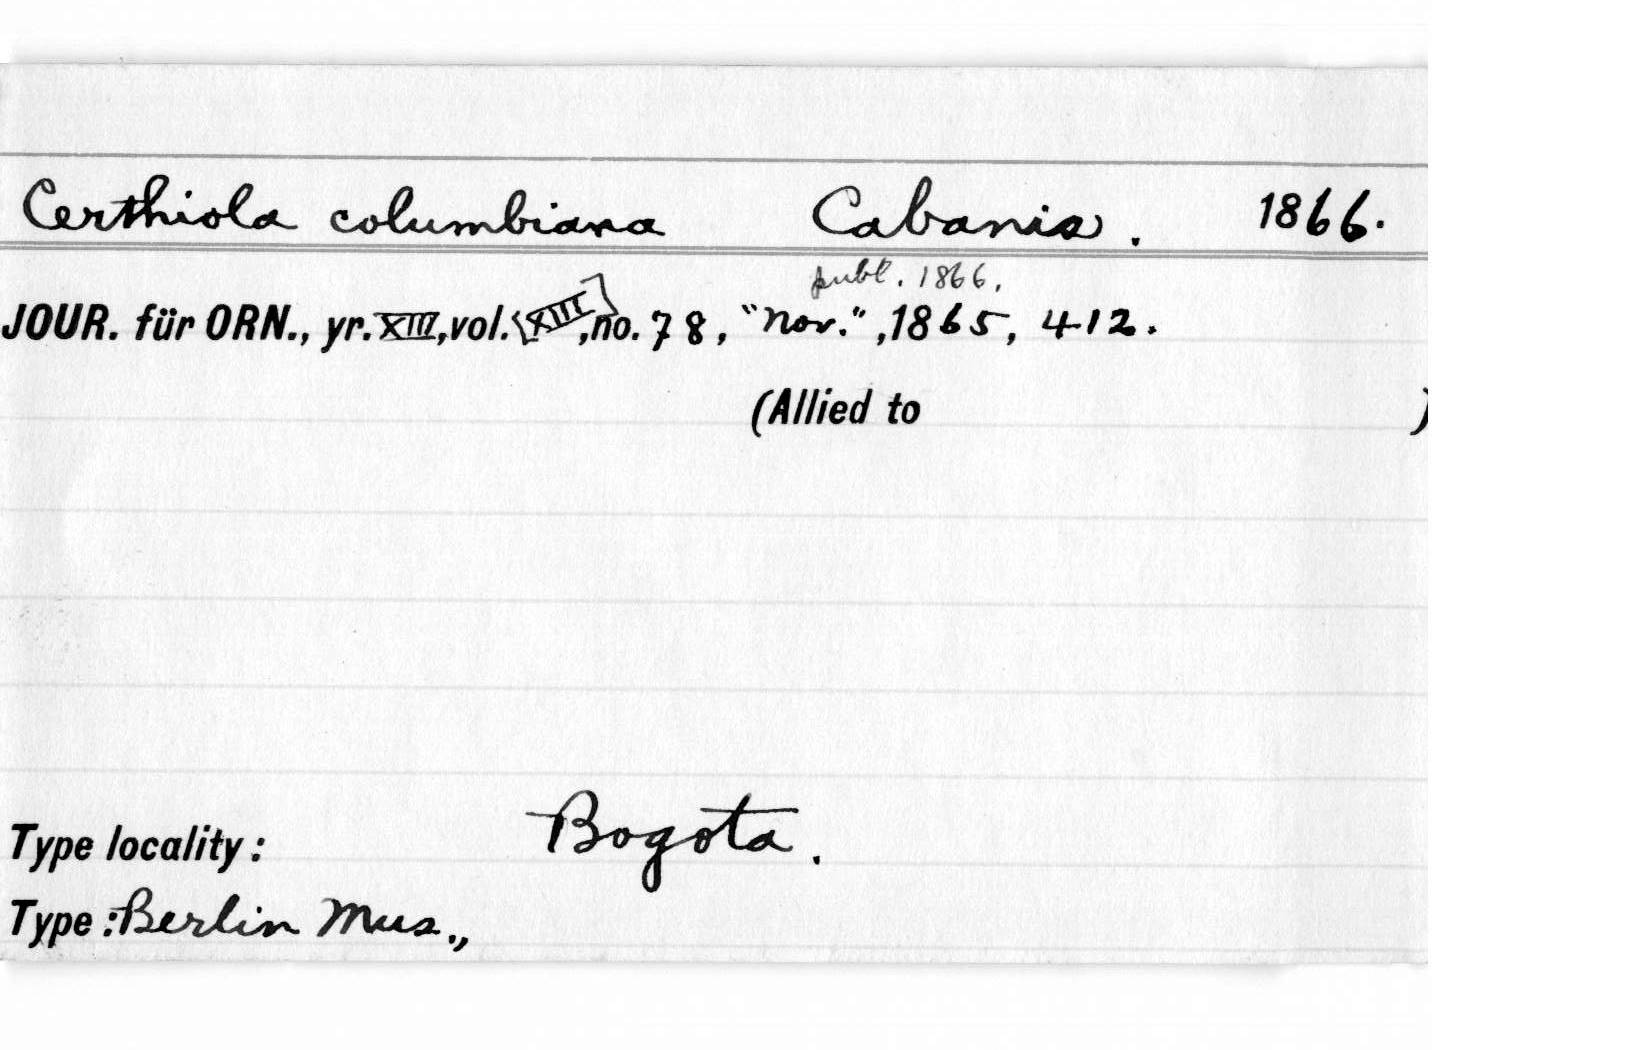 Certhiola columbiana Cabanis. 1866.
publ. 1866.
JOUR. für ORN., yr. XIII, vol. [XIII], no. 78, "Nov.", 1865, 412.
(Allied to )
Type locality: Bogota.
Type: Berlin Mus.,